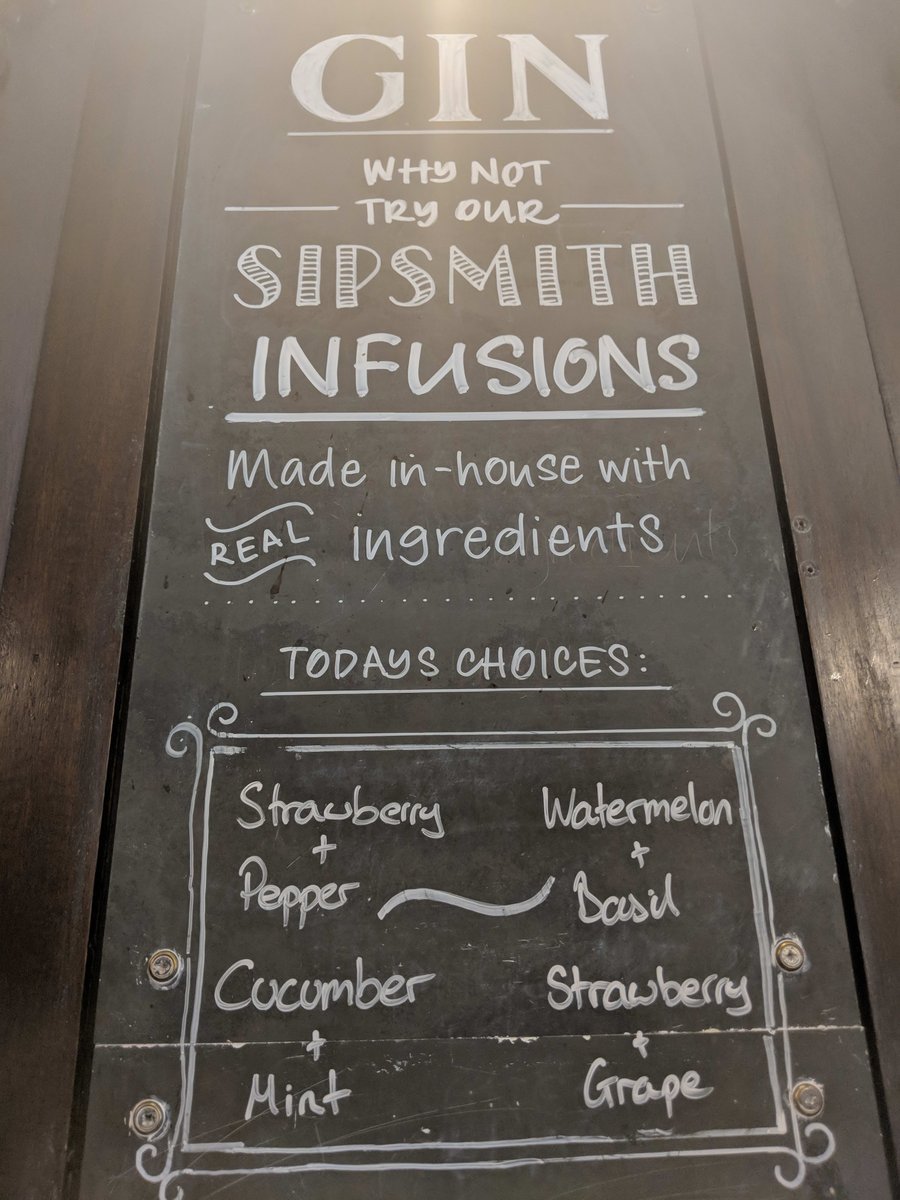 GIN
WHY NOT
TRY OUR
SIPSMITH
INFUSIONS
Made in-house with
REAL ingredients
TODAYS CHOICES:
Strawberry
+
Pepper
Watermelon
+
Basil
Cucumber
+
Mint
Strawberry
+
Grape